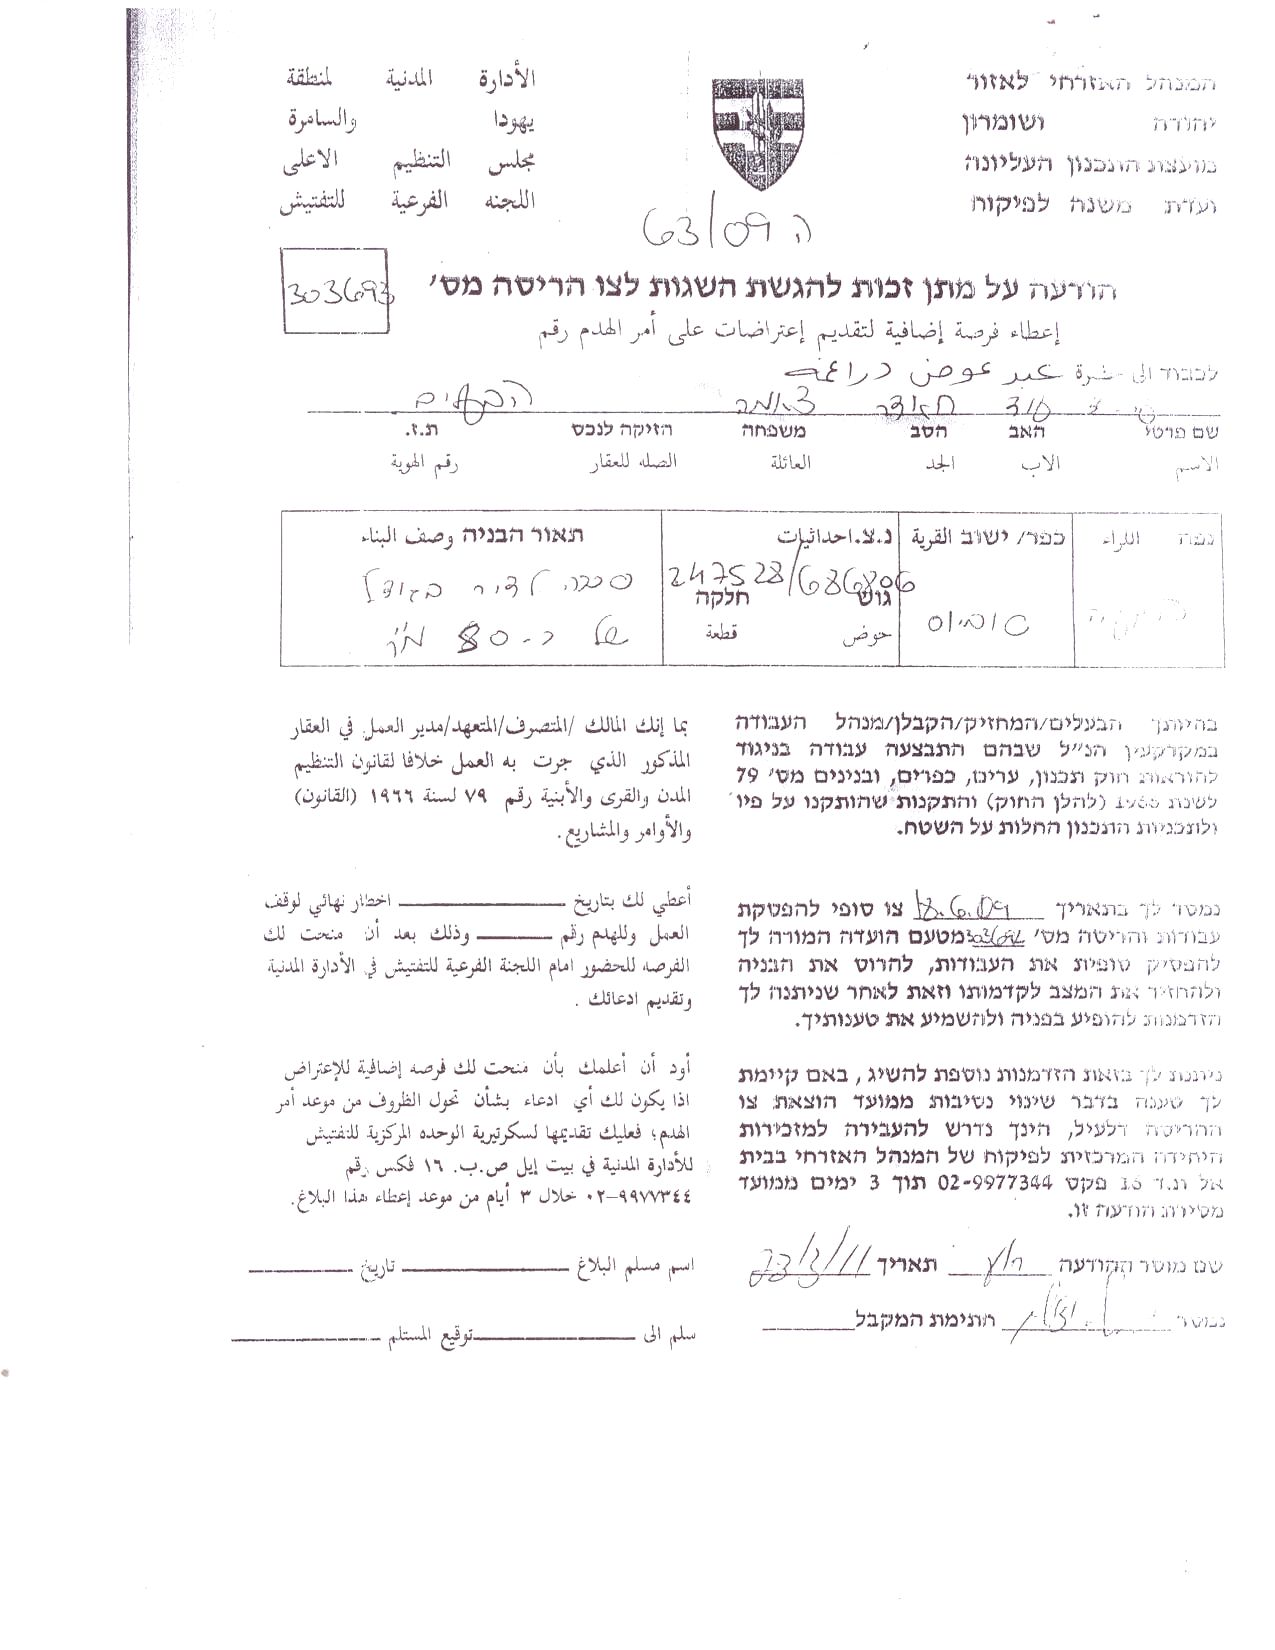 המנהל האזרחי לאזור
יהודה ושומרון
מועצת התכנון העליונה
ועדת משנה לפיקוח
الأدارة المدنية لمنطقة
يهودا والسامرة
مجلس التنظيم الاعلى
اللجنه الفرعية للتفتيش
ה 63/09
הודעה על מתן זכות להגשת השגות לצו הריסה מס׳
303693
إعطاء فرصة إضافية لتقديم إعتراضات على أمر الهدم رقم
לכבוד الى عوض دراغمه
שם פרטי האב הסב משפחה הזיקה לנכס ת.ז.
الاسم الاب الجد العائلة الصله للعقار رقم الهوية
נפה اللواء כפר/ ישוב القرية נ.צ. احداثيات תאור הבניה وصف البناء
247528/636806
גוש חלקה
حوض قطعة
סככה לדיר בגודל
של כ-80 מ"ר
בהיותך הבעלים/המחזיק/הקבלן/מנהל העבודה
במקרקעין הנ״ל שבהם התבצעה עבודה בניגוד
להוראות חוק תכנון, ערים, כפרים, ובנינים מס׳ 79
לשנת 1966 (להלן החוק) והתקנות שהותקנו על פיו
ולתכניות התכנון החלות על השטח.
بما إنك المالك /المتصرف/المتعهد/مدير العمل في العقار
المذكور الذي جرت به العمل خلافا لقانون التنظيم
المدن والقرى والأبنية رقم ٧٩ لسنة ١٩٦٦ (القانون)
والأوامر والمشاريع.
נמסר לך בתאריך 18.6.09 צו סופי להפסקת
עבודות והריסה מס׳ מטעם הועדה המורה לך
להפסיק סופית את העבודות, להרוס את הבניה
ולהחזיר את המצב לקדמותו וזאת לאחר שניתנה לך
הזדמנות להופיע בפניה ולהשמיע את טענותיך.
أعطي لك بتاريخ اخطار نهائي لوقف
العمل وللهدم رقم وذلك بعد أن منحت لك
الفرصه للحضور امام اللجنة الفرعية للتفتيش في الأدارة المدنية
وتقديم ادعائك .
ניתנת לך בזאת הזדמנות נוספת להשיג, באם קיימת
לך טענה בדבר שינוי נסיבות ממועד הוצאת צו
ההריסה דלעיל, הינך נדרש להעבירה למזכירות
היחידה המרכזית לפיקוח של המנהל האזרחי בבית
אל ת.ד 16 פקס 02-9977344 תוך 3 ימים ממועד
מסירת הודעה זו.
أود أن أعلمك بأن منحت لك فرصه إضافية للإعتراض
اذا يكون لك أي ادعاء بشأن تحول الظروف من موعد أمر
الهدم؛ فعليك تقديمها لسكرتيرية الوحده المركزية للتفتيش
للأدارة المدنية في بيت إيل ص.ب. ١٦ فكس رقم
٠٢-٩٩٧٧٣٤٤ خلال ٣ أيام من موعد إعطاء هذا البلاغ.
שם מוסר ההודעה תאריך 23/3/11
נמסר ל חתימת המקבל
اسم مسلم البلاغ تاريخ
سلم الى توقيع المستلم